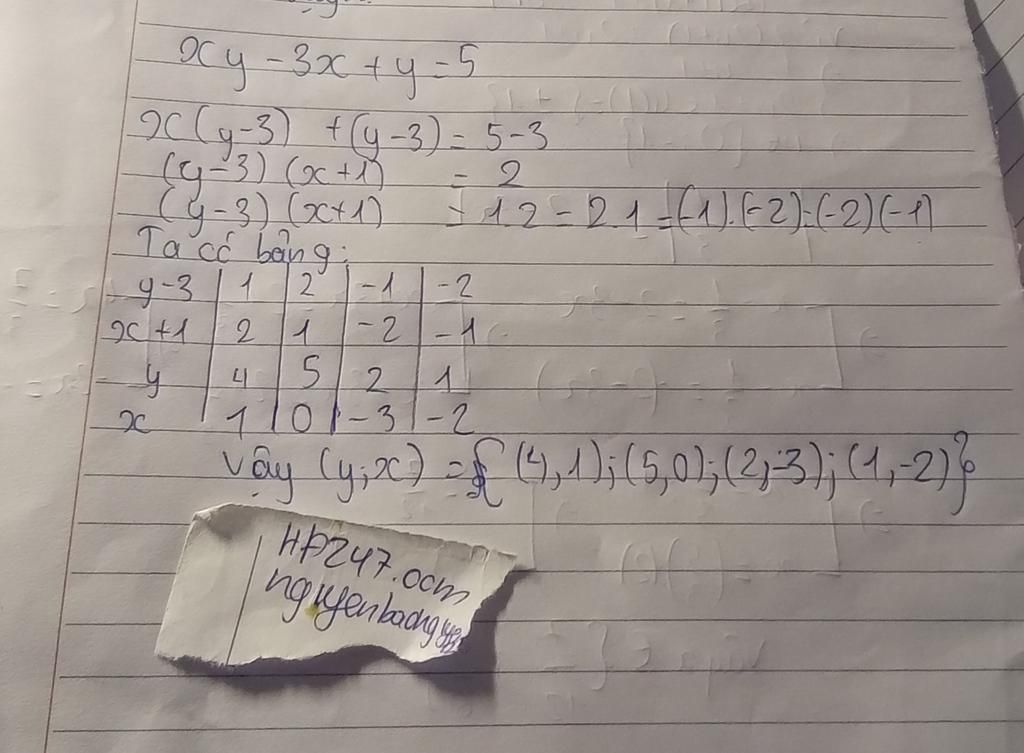 xy - 3x + y = 5
x(y-3) + (y-3) = 5-3
(y-3) (x+1) = 2
(y-3) (x+1) = 1.2 = 2.1 = (-1).(-2) = (-2)(-1)
Ta có bảng:
y-3 | 1 | 2 | -1 | -2
x+1 | 2 | 1 | -2 | -1
y | 4 | 5 | 2 | 1
x | 1 | 0 | -3 | -2
Vậy (y;x) = { (4,1);(5,0);(2,-3);(1,-2)}
HP247.com